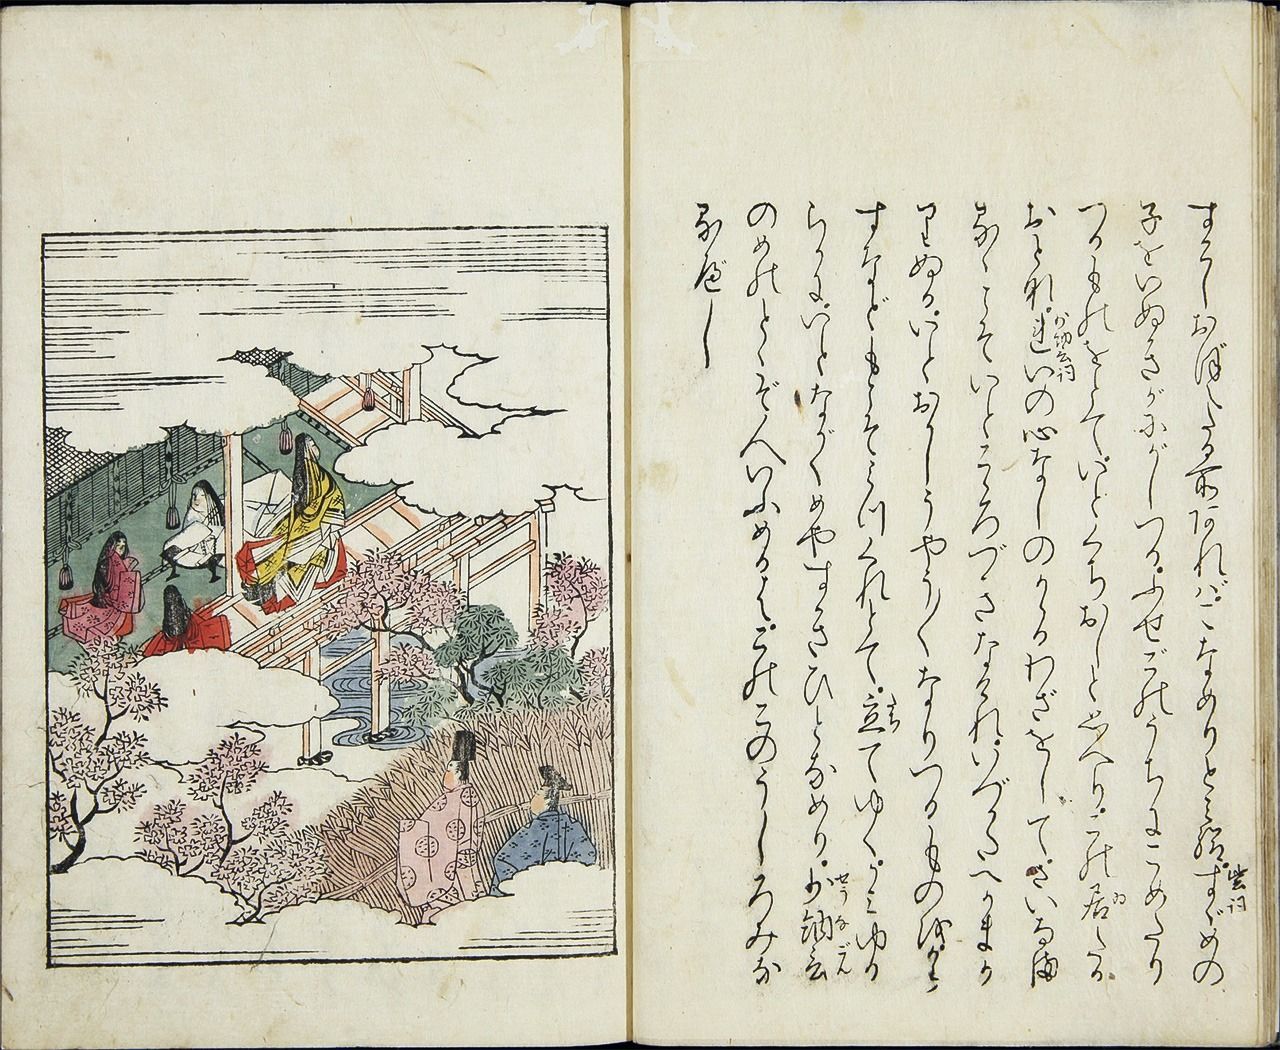 すこしおぼえたる所あれバ。こなめりと見給。すゞめの
子をいぬきがにがしつる。ふせごのうちにこめたり
つるものをとて。いとくちおしと思へり。この居たる
おとな。例の心なしのかゝるわざをして。さいなま
るゝこそいとこころづきなけれ。いづかたへかまか
りぬる。いとおかしうやう〳〵なりつるものをから
すなどもこそみつくれとて。立てゆく。かミゆる
らかに。いとながくめやすきひとなめり。少納言
のめのとゝぞ人いふめるは。このこのうしろみな
るべし
紫詞
少納言詞